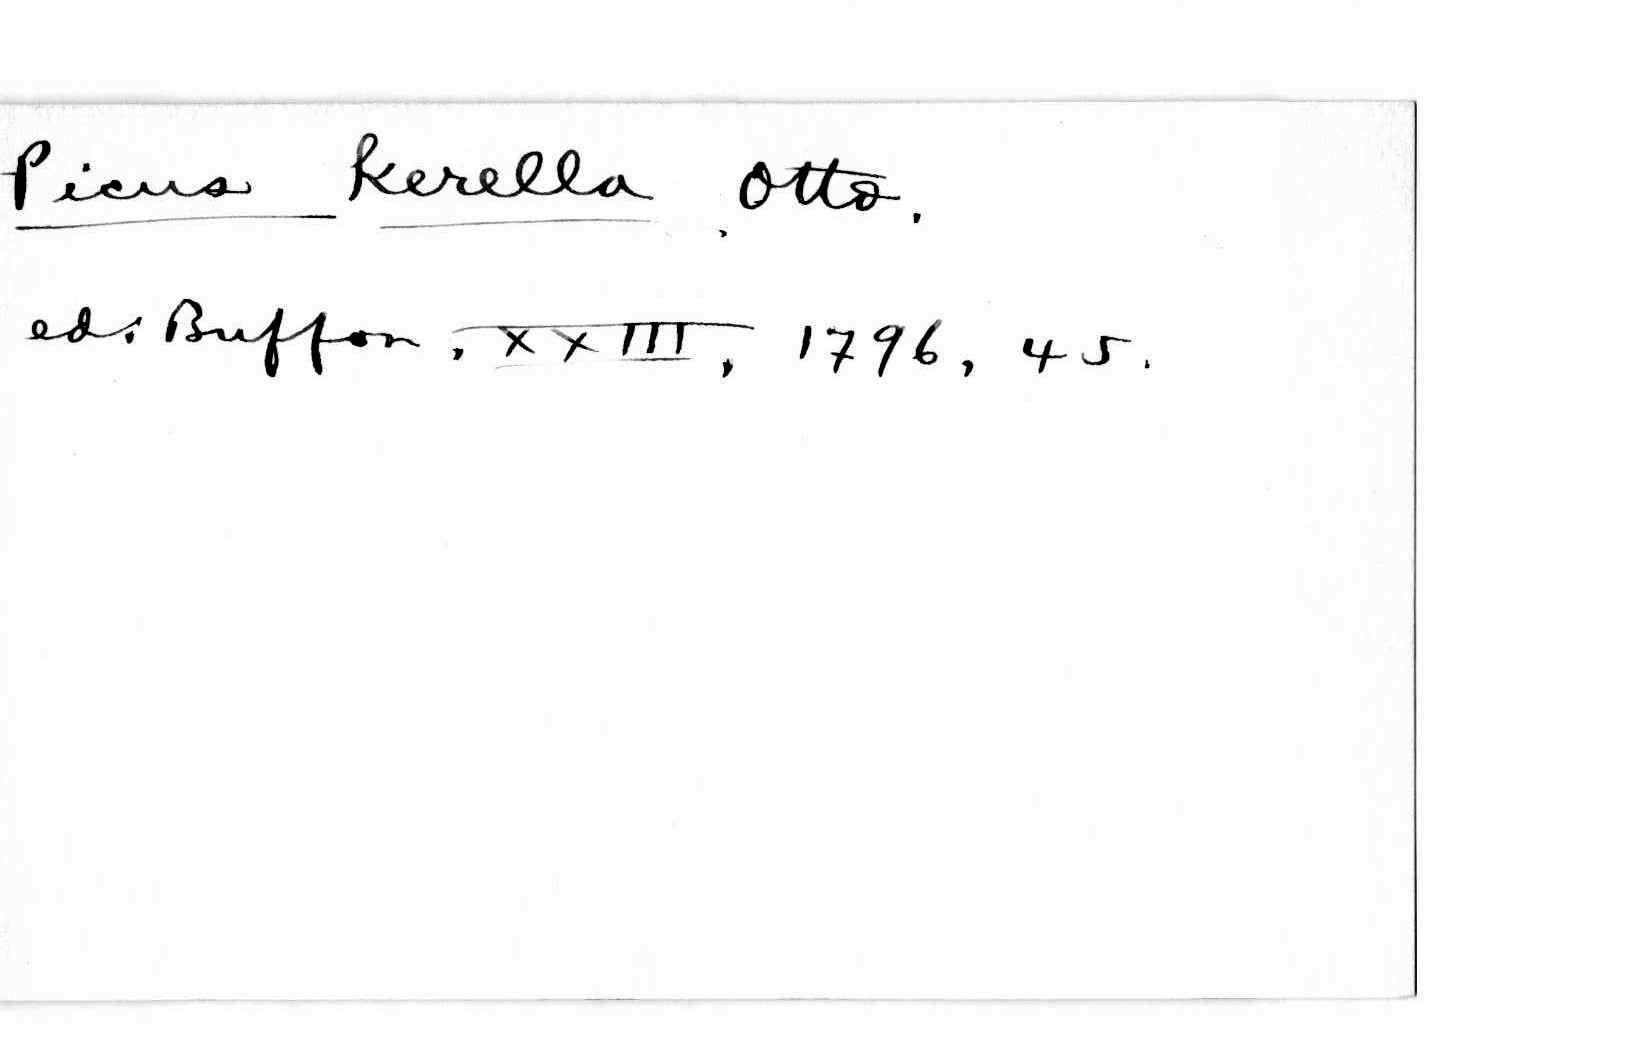 Picus kerella, Otto.
ed. Buffon, XXIII, 1796, 45.